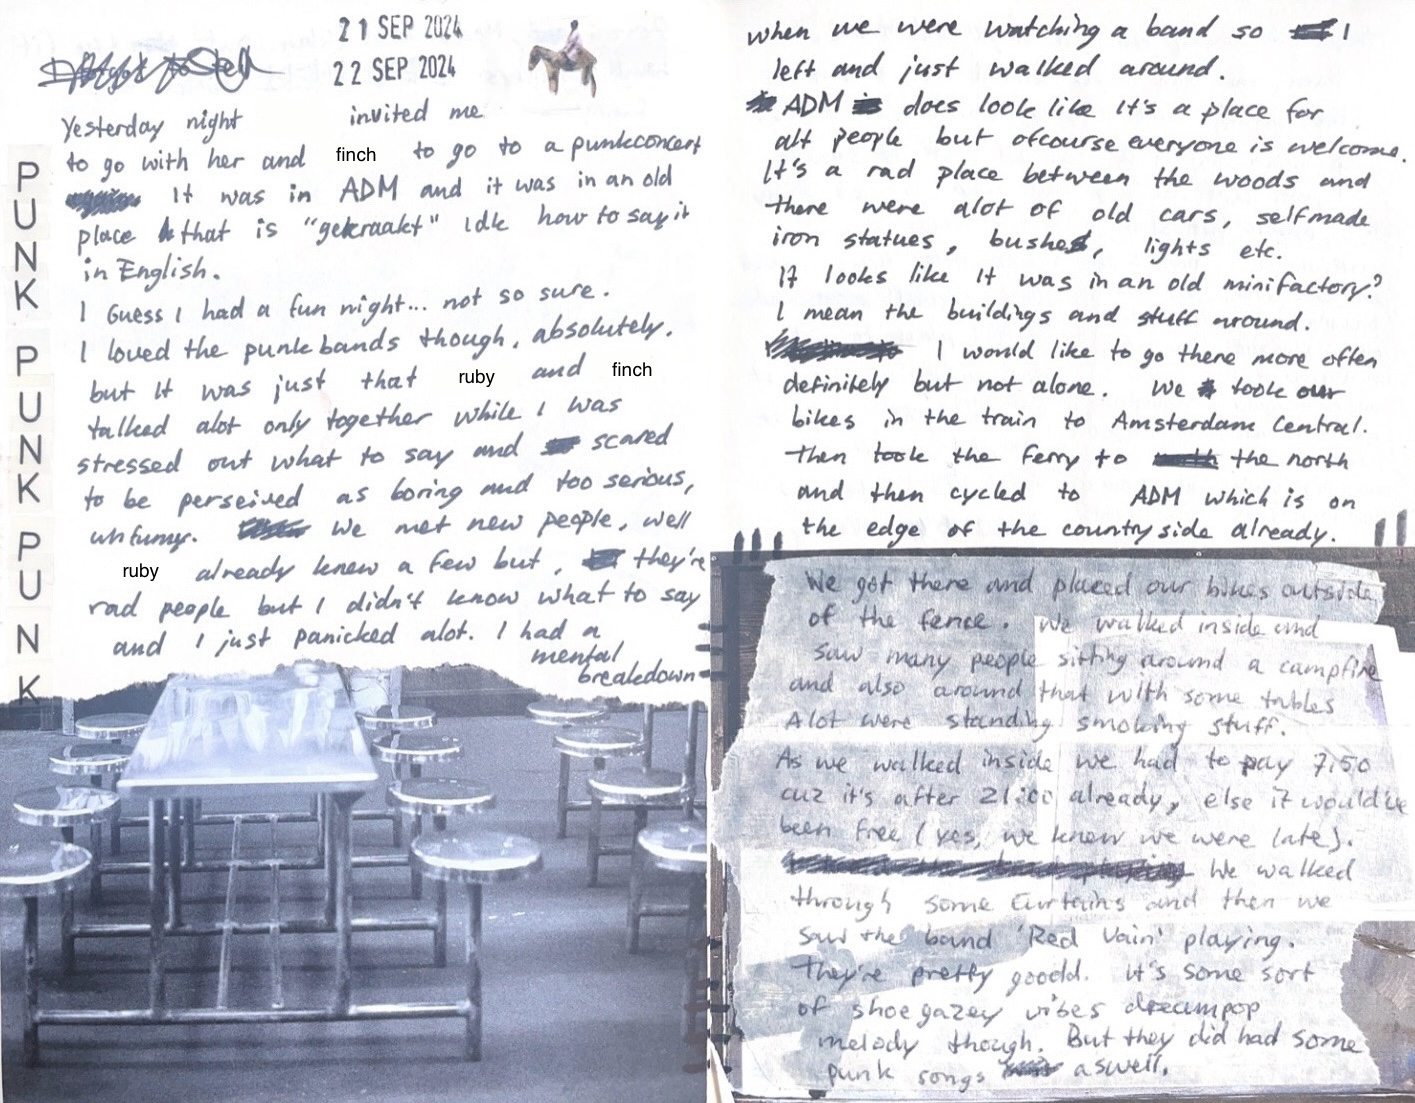 21 SEP 2024
22 SEP 2024
PUNK PUNK PUNK
Yesterday night invited me
to go with her and finch to go to a punkconcert
It was in ADM and it was in an old
place that is "gekraakt" idk how to say it
in English.
I Guess I had a fun night... not so sure.
I loved the punk bands though, absolutely.
but it was just that ruby and finch
talked alot only together while I was
stressed out what to say and scared
to be perseived as boring and too serious,
unfunny. We met new people, well
ruby already knew a few but, they're
rad people but I didn't know what to say
and I just panicked alot. I had a
mental
breakdown
when we were watching a band so I
left and just walked around.
ADM does look like it's a place for
alt people but ofcourse everyone is welcome.
It's a rad place between the woods and
there were alot of old cars, selfmade
iron statues, bushes, lights etc.
It looks like it was in an old minifactory?
I mean the buildings and stuff around.
I would like to go there more often
definitely but not alone. We took our
bikes in the train to Amsterdam Central.
Then took the ferry to the north
and then cycled to ADM which is on
the edge of the country side already.
We got there and placed our bikes outside
of the fence. We walked inside and
saw many people sitting around a campfire
and also around that with some tables
Alot were standing smoking stuff.
As we walked inside we had to pay 7,50
cuz it's after 21:00 already, else it would've
been free (yes, we knew we were late).
We walked
through some curtains and then we
saw the band 'Red Vain' playing.
They're pretty goodd. it's some sort
of shoegazey vibes dreampop
melody though. But they did had some
punk songs aswell.